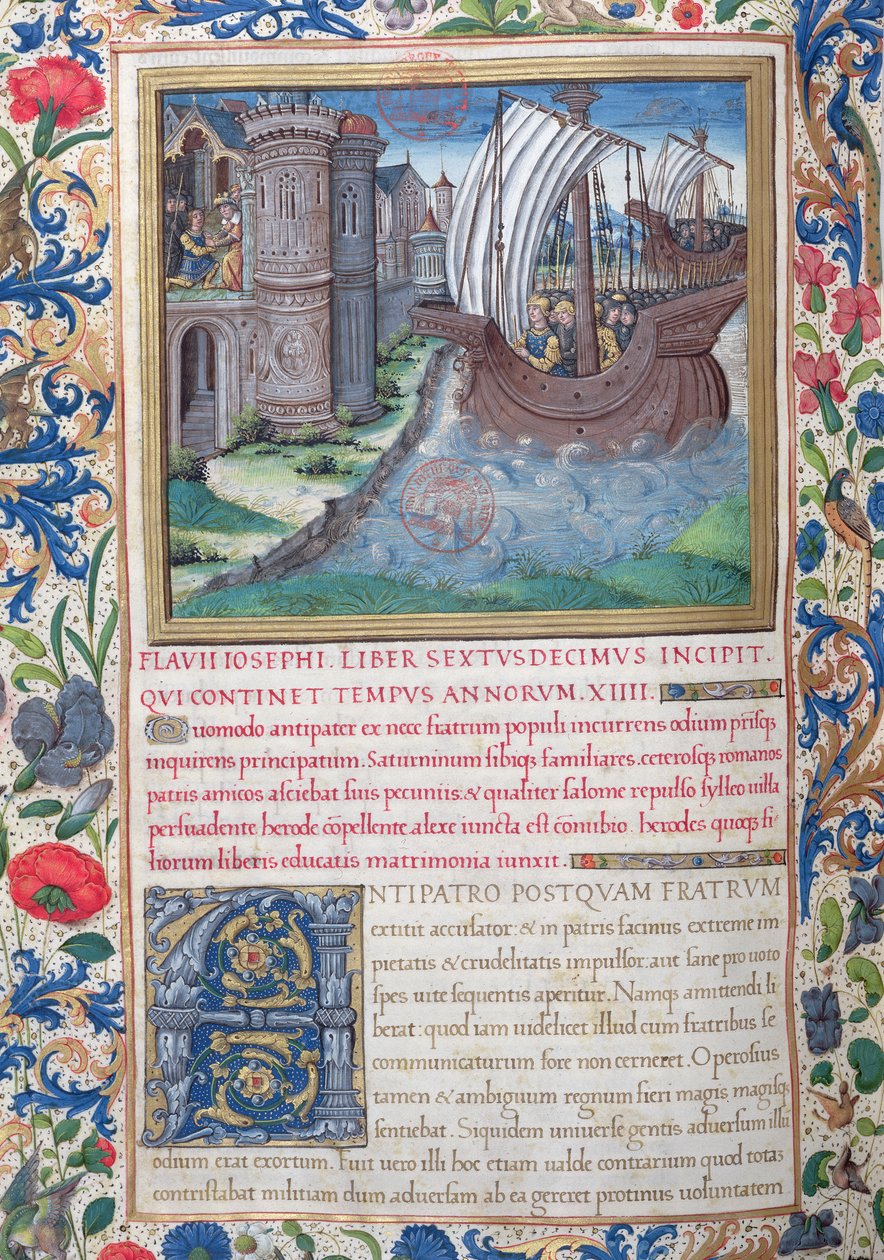 FLAVII IOSEPHI. LIBER SEXTVSDECIMVS INCIPIT.
QVI CONTINET TEMPVS ANNORVM. XIIII.
Quomodo antipater ex nece fratrum populi incurrens odium prīsq;
inquirens principatum. Saturninum sibiq; familiares. ceterosq; romanos
patris amicos asciebat suis pecuniis. & qualiter salome repulso sylleo uilla
persuadente herode cōpellente alexe iuncta est cōnubio. herodes quoq; fi
liorum liberis educatis matrimonia iunxit.
ANTIPATRO POSTQVAM FRATRVM
extitit accusator: & in patris facinus extreme im
pietatis & crudelitatis impulsor. aut sane pro uoto
spes uite sequentis aperitur. Namq; amittendi li
berat: quod iam uidelicet illud cum fratribus se
communicaturum fore non cerneret. Operosius
tamen & ambiguum regnum fieri magis magisq;
sentiebat. Siquidem uniuerse gentis aduersum illū
odium erat exortum. Fuit uero illi hoc etiam ualde contrarium quod totaz
contristabat militiam dum aduersam ab ea gereret protinus uoluntatem